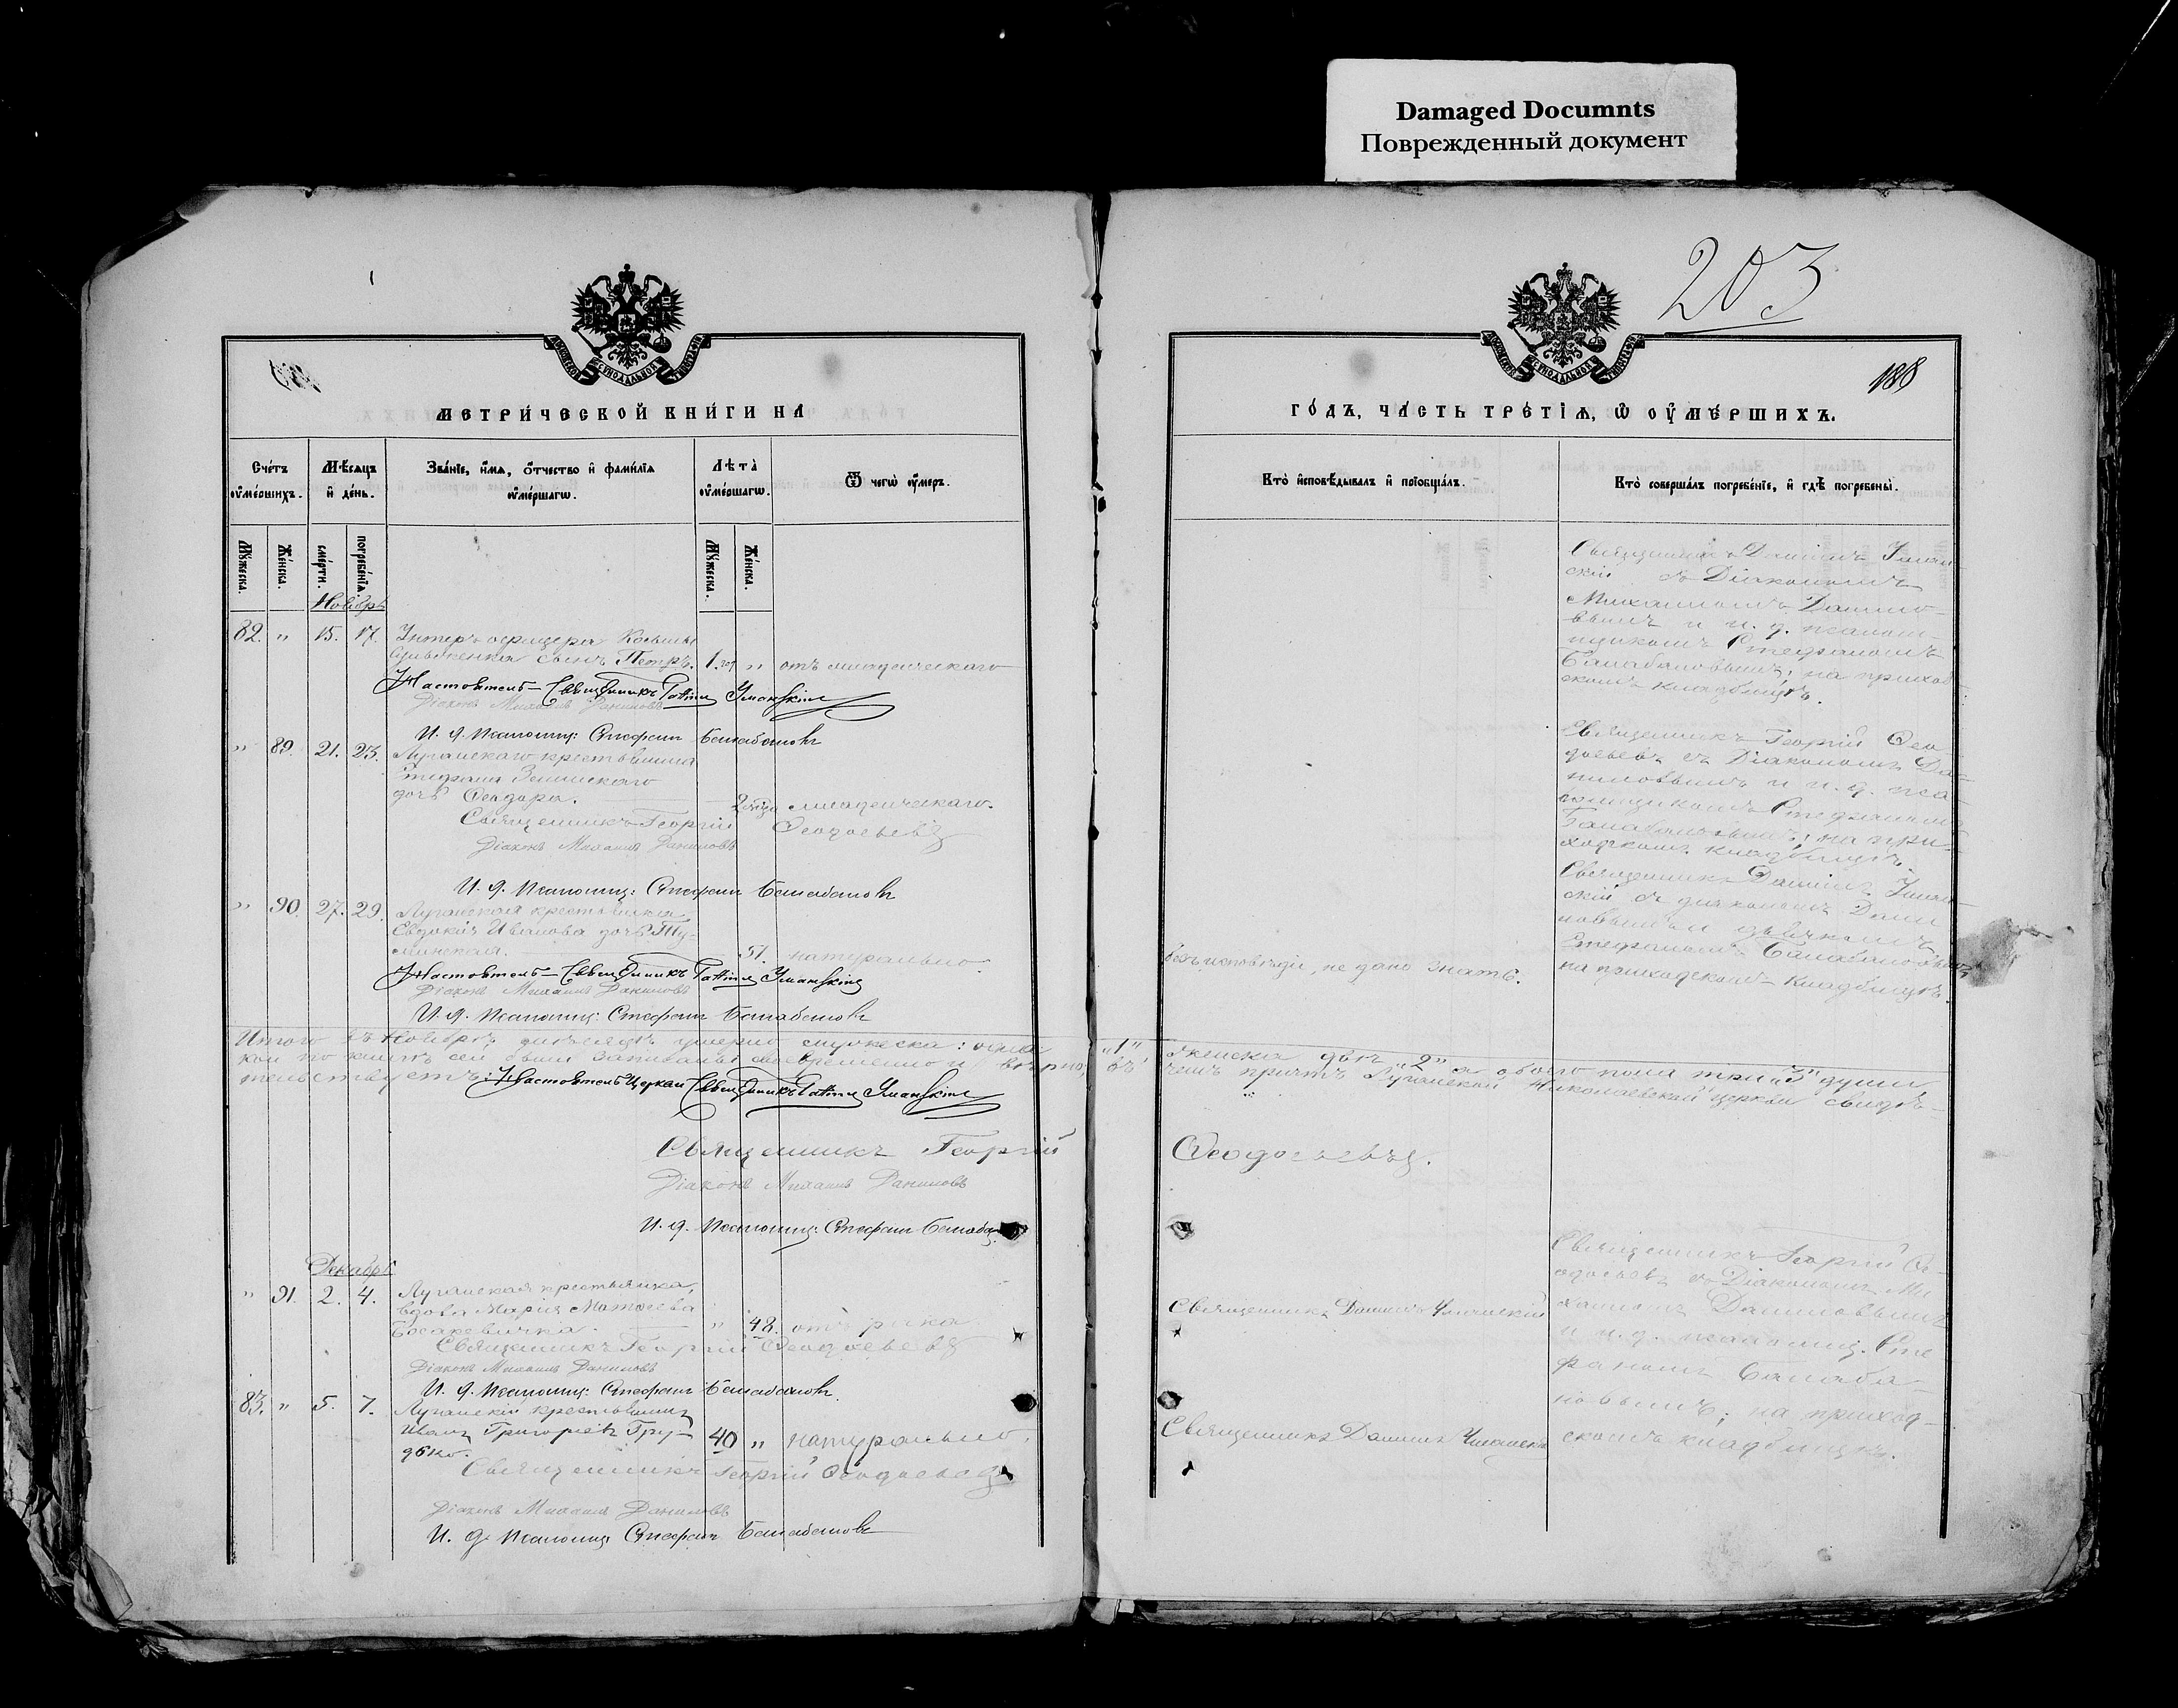 Damaged Documnts
Поврежденный документ
203
188
МЕТРИ́ЧЕСКОЙ КНИ́ГИ НА
ГО́ДЪ, ЧА́СТЬ ТРЕ́ТІѦ, Ѽ ОУ҆МЕ́РШИХЪ.
Сче́тъ оу҆ме́ршихъ.
Мѣ́сѧцъ и҆ де́нь.
Зва́нїе, и҆́мѧ, ѻ҆́тчество и҆ фами́лїѧ оу҆ме́ршагѡ.
Лѣ́та оу҆ме́ршагѡ.
Ѿ чегѡ̀ оу҆́меръ.
Кто̀ и҆сповѣ́дывалъ и҆ прїѡбща́лъ.
Кто̀ соверша́лъ погребе́нїе, и҆ гдѣ̀ погребены̀.
Мꙋ́жеска.
Же́нска.
сме́рти.
погребе́нїѧ.
Мꙋ́жеска.
Же́нска.
Ноябрь
82. " 15. 17. Унтеръ-офицера Косьмы
сынъ Петръ. 1. год " отъ младенческаго
Настоятель-Священникъ Уманскій
Діаконъ Михаилъ Даниловъ
И. д. псаломщ: Стефанъ Балабановъ
Священникъ Даміанъ Уман-
скій съ Діакономъ
Михаиломъ Данило-
вымъ и и. д. псалом-
щикомъ Стефаномъ
Балабановымъ; на приход-
скомъ кладбищѣ.
" 89. 21. 23. Луганскаго крестьянина
Стефана Зелинскаго
дочь Ѳеодора. младенческаго.
Священникъ Георгій Ѳеодосьевъ
Діаконъ Михаилъ Даниловъ
И. д. псаломщ: Стефанъ Балабановъ
Священникъ Георгій Ѳео-
досьевъ съ Діакономъ Да-
ниловымъ и и. д. пса-
ломщикомъ Стефаномъ
Балабановымъ; на при-
ходскомъ кладбищѣ.
" 90. 27. 29. Луганская крестьянка
Евдокія Иванова дочь Ту-
минская. 51. натурально.
Настоятель-Священникъ Уманскій
Діаконъ Михаилъ Даниловъ
И. д. псаломщ: Стефанъ Балабановъ
безъ исповѣди, не дано знать.
Священникъ Даміанъ Уман-
скій съ діакономъ Дани
ловымъ и дьячкомъ
Стефаномъ Балабановымъ
на приходскомъ кладбищѣ.
Итого въ Ноябрѣ мѣсяцѣ умерло мужеска: одна "1" женска двѣ "2" а обоего пола три "3" души
кои по книгѣ сей были записаны своевременно и вѣрно, въ чемъ причтъ Луганской Николаевской церкви свидѣ-
тельствуетъ: Настоятель Церкви Священникъ Уманскій
Священникъ Георгій Ѳеодосьевъ.
Діаконъ Михаилъ Даниловъ
И. д. псаломщ: Стефанъ
Декабрь
" 91. 2. 4. Луганская крестьянка,
вдова Марія Матѳеева
" 48. отъ рака
Священникъ Георгій Ѳеодосьевъ
Діаконъ Михаилъ Даниловъ
И. д. псаломщ: Стефанъ Балабановъ.
Священникъ Даміанъ Уманскій
Священникъ Георгій Ѳе-
одосьевъ съ Діакономъ Ми
хаиломъ Даниловымъ
и и. д. псаломщ. Сте
фаномъ Балаба-
новымъ; на приход-
скомъ кладбищѣ.
83. " 5. 7. Луганскій крестьянинъ
Иванъ Григорьевъ
40 " натурально.
Священникъ Георгій Ѳеодосьевъ
Діаконъ Михаилъ Даниловъ
И. д. псаломщ. Стефанъ Балабановъ
Священникъ Даміанъ Уманскій